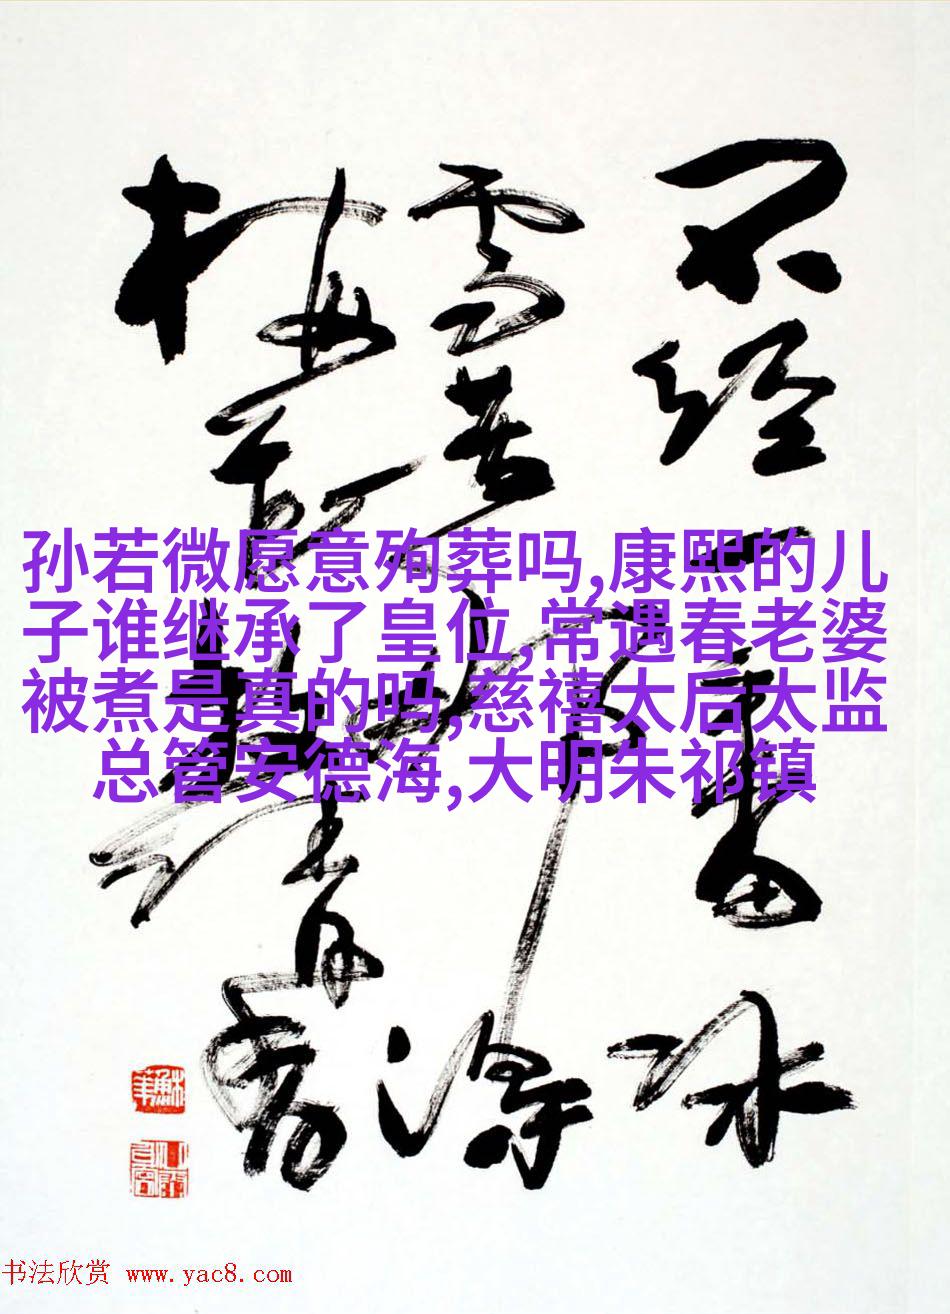 不经一番冰
雪苦得
梅清香
孙若微愿意殉葬吗,康熙的儿
子谁继承了皇位,常遇春老婆
被煮是真的吗,慈禧太后太监
总管安德海,大明朱祁镇
书法欣赏 www.yac8.com